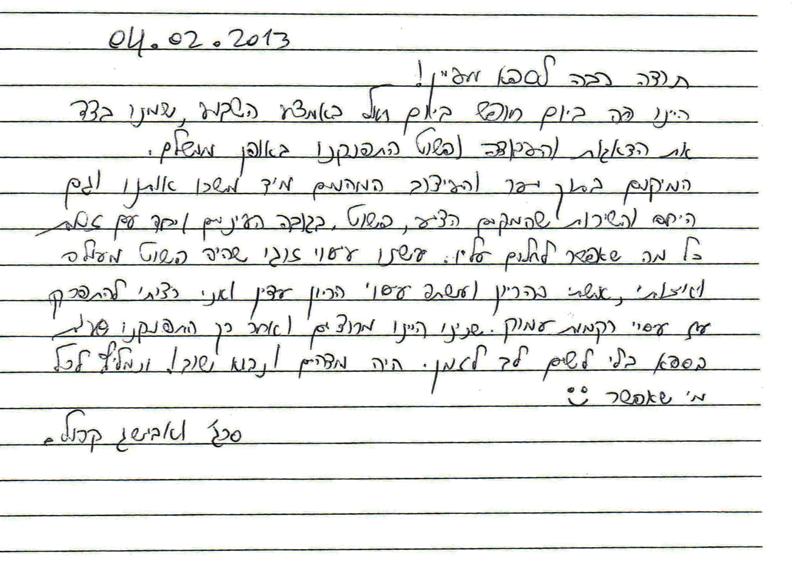 04.02.2013
תודה רבה לספא מעיין!
היינו פה ביום חופש ביום חול באמצע השבוע, שמנו בצד
את הדאגות והעבודה ופשוט התפנקנו באופן מושלם.
המיקום בתוך יער והעיצוב המהמם מיד משכו אותנו וגם
היחס והשירות שהמקום הציע, פשוט בגובה העיניים ויחד עם זאת
כל מה שאפשר לחלום עליו. עשינו עיסוי זוגי שהיה פשוט מעולה
ואיכותי, אשתי בהריון ועשתה עיסוי הריון עדין ואני רציתי להתפרק
עם עיסוי רקמות עמוק. שנינו היינו מרוצים ואחר כך התפנקנו
בספא בלי לשים לב לזמן. היה מדהים ונבוא שוב! ונמליץ לכל
מי שאפשר
ואבישג